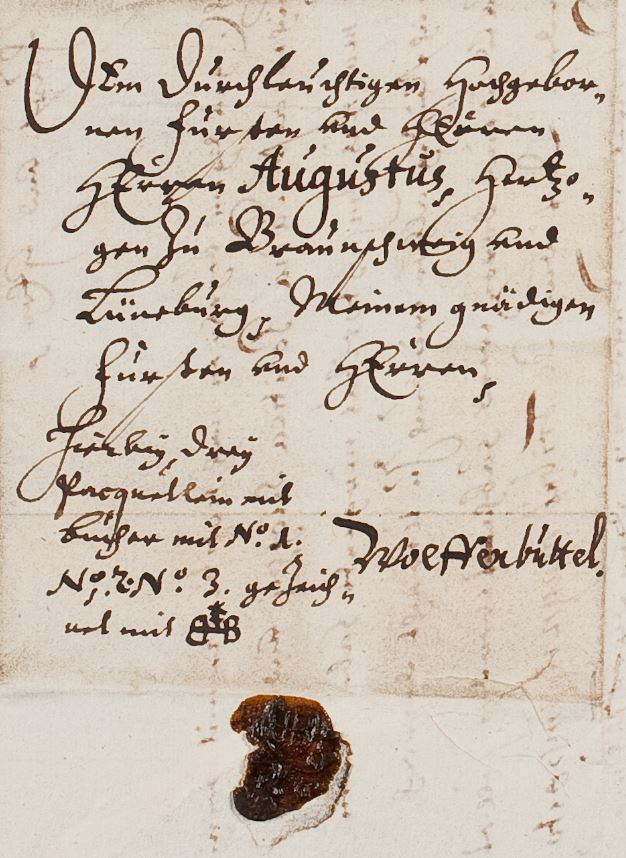 Dem Durchleuchtigen Hochgebor-
nen Fürsten und HErren
HErren Augustus, Hertzo-
gen Zu Braunschweig und
Lüneburg, Meinem gnädigen
Fürsten und HErren,
Hierbey drey
Pacquetlein mit
bücher mit No. 1.
No. 2. No. 3. geZeich-
net mit
Wolffenbüttel.